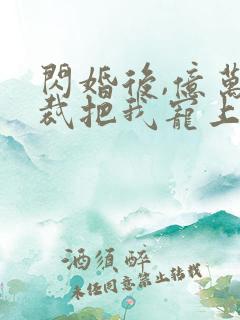 閃婚後,億萬
裁把我寵上
酒須醉
未經同意禁止轉載